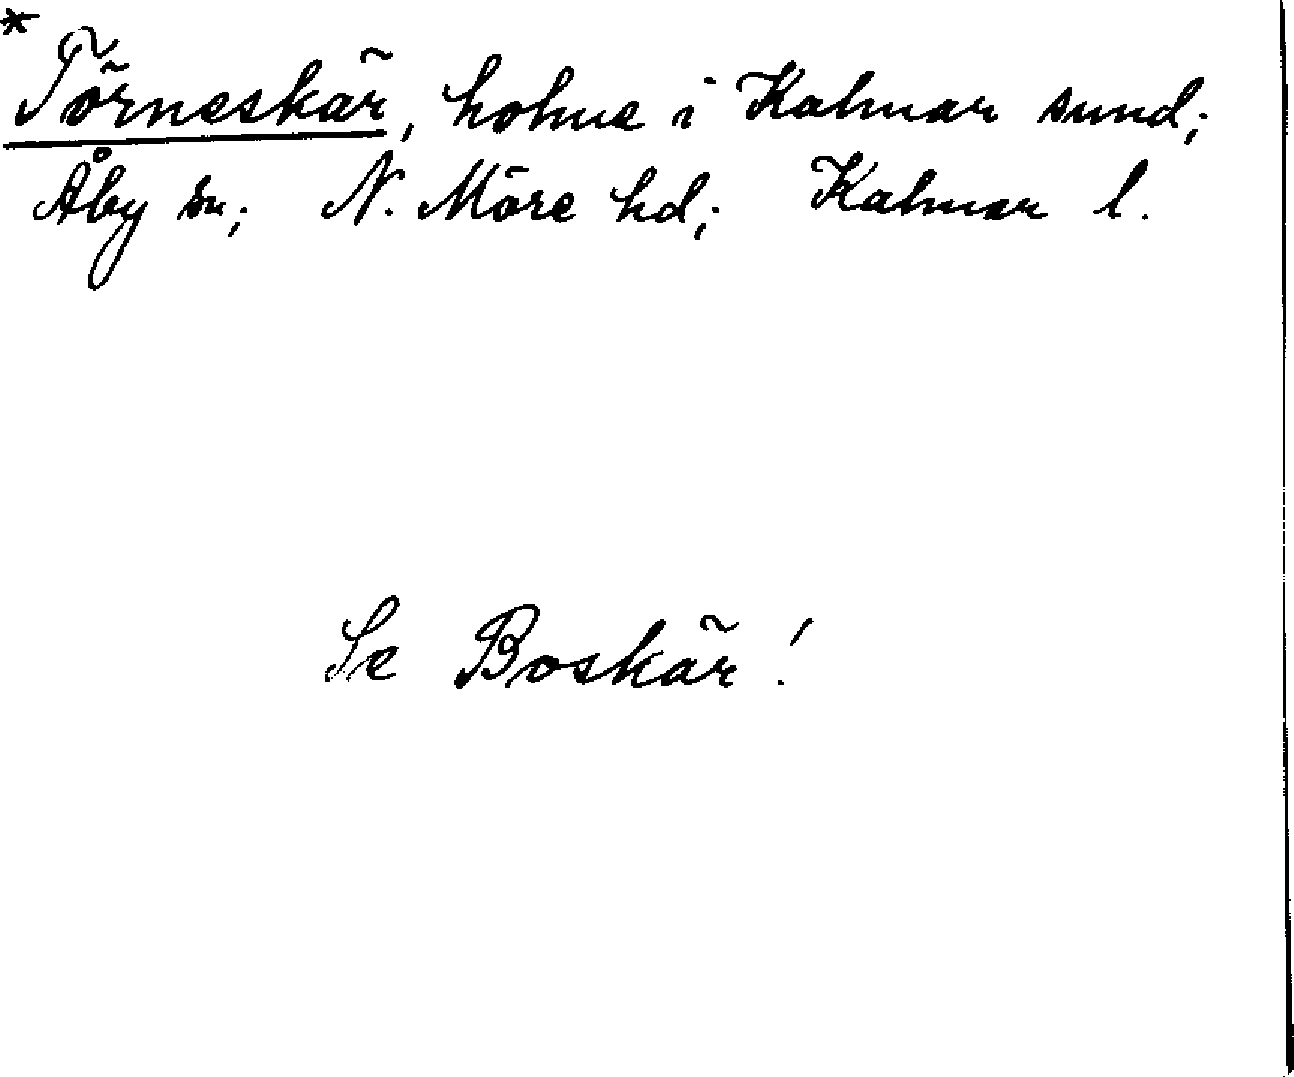 * Törneskär, holme i Kalmar sund;
Åby sn; N. Möre hd; Kalmar l.
Se Boskär!